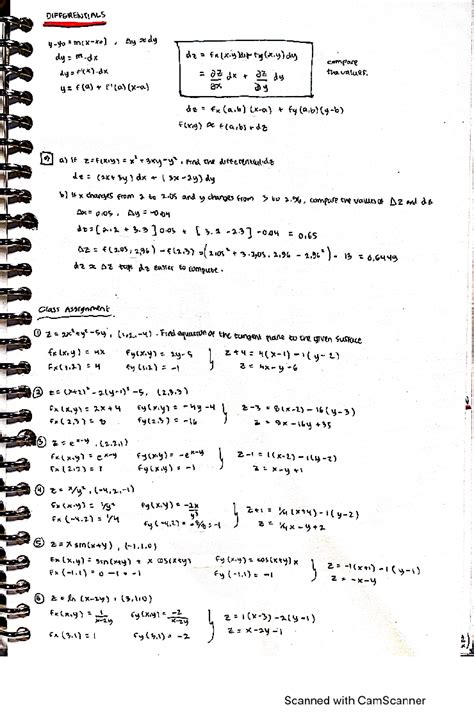 DIFFERENTIALS
y-y₀ = m(x-x₀) , Δy ≈ dy
dy = m.dx
dy = f'(x).dx
y = f(a) + f'(a)(x-a)
dz = fx(x,y)dx + fy(x,y)dy
= ∂z/∂x dx + ∂z/∂y dy
compare the values.
dz = fx(a,b)(x-a) + fy(a,b)(y-b)
f(x,y) ≈ f(a,b) + dz
a) If z = f(x,y) = x² + 3xy - y² , find the differential dz
dz = (2x+3y) dx + (3x-2y) dy
b) If x changes from 2 to 2.05 and y changes from 3 to 2.96, compare the values of Δz and dz
Δx = 0.05 , Δy = -0.04
dz = [2.2 + 3.3] 0.05 + [3.2 - 2.3] -0.04 = 0,65
Δz = f(2.05, 2.96) - f(2,3) = (2.05² + 3.2,05.2,96 - 2,96²) - 13 = 0,6449
dz ≈ Δz dz easier to compute.
Class Assignment
① z = 2x² + y² - 5y , (1,2,-4). Find equation of the tangent plane to the given surface
fx(x,y) = 4x fy(x,y) = 2y-5 z+4 = 4(x-1) - 1(y-2)
fx(1,2) = 4 fy(1,2) = -1 z = 4x - y - 6
② z = (x+2)² - 2(y-1)² - 5, (2,3,3)
fx(x,y) = 2x+4 fy(x,y) = -4y-4 z-3 = 8(x-2) - 16(y-3)
fx(2,3) = 8 fy(2,3) = -16 z = 8x - 16y + 35
③ z = e^x-y , (2,2,1)
fx(x,y) = e^x-y fy(x,y) = -e^x-y z-1 = 1(x-2) - 1(y-2)
fx(2,2) = 1 fy(x,y) = -1 z = x - y + 1
④ z = x/y² , (-4,2,-1)
fx(x,y) = 1/y² fy(x,y) = -2x/y³ z+1 = 1/4(x+4) - 1(y-2)
fx(-4,2) = 1/4 fy(-4,2) = -8/8 = -1 z = 1/4x - y + 2
⑤ z = x sin(x+y) , (-1,1,0)
fx(x,y) = sin(x+y) + x cos(x+y) fy(x,y) = cos(x+y)x z = -1(x+1) - 1(y-1)
fx(-1,1) = 0 - 1 = -1 fy(-1,1) = -1 z = -x-y
⑥ z = ln (x-2y) , (3,1,0)
fx(x,y) = 1/x-2y fy(x,y) = -2/x-2y z = 1(x-3) - 2(y-1)
fx(3,1) = 1 fy(3,1) = -2 z = x-2y-1
Scanned with CamScanner